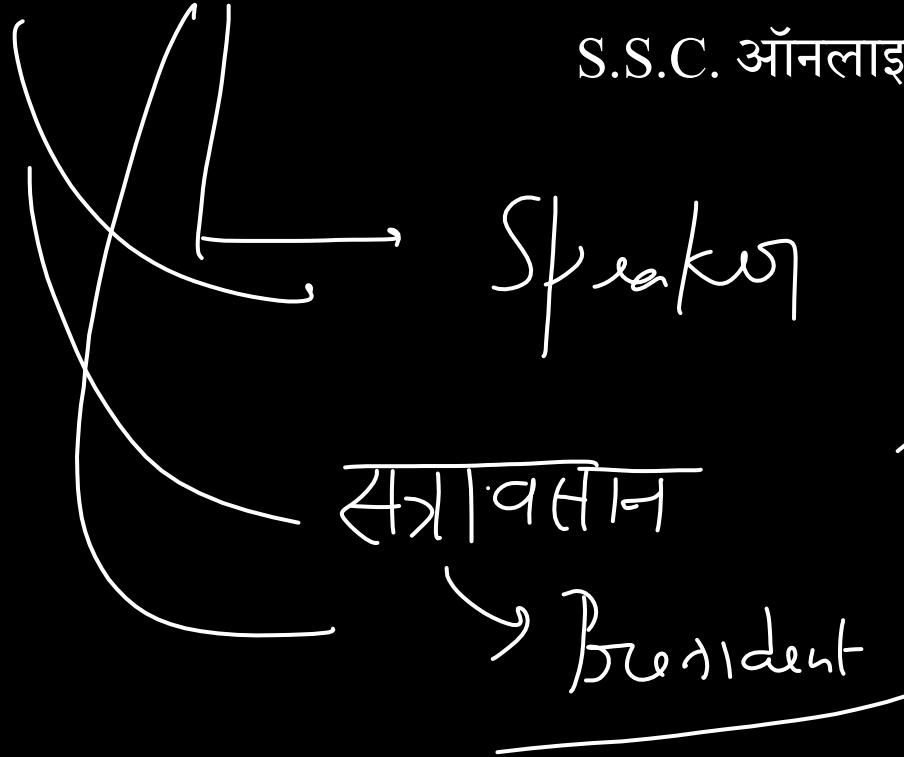 S.S.C. ऑनलाइ
Speaker
सत्रावसान
President